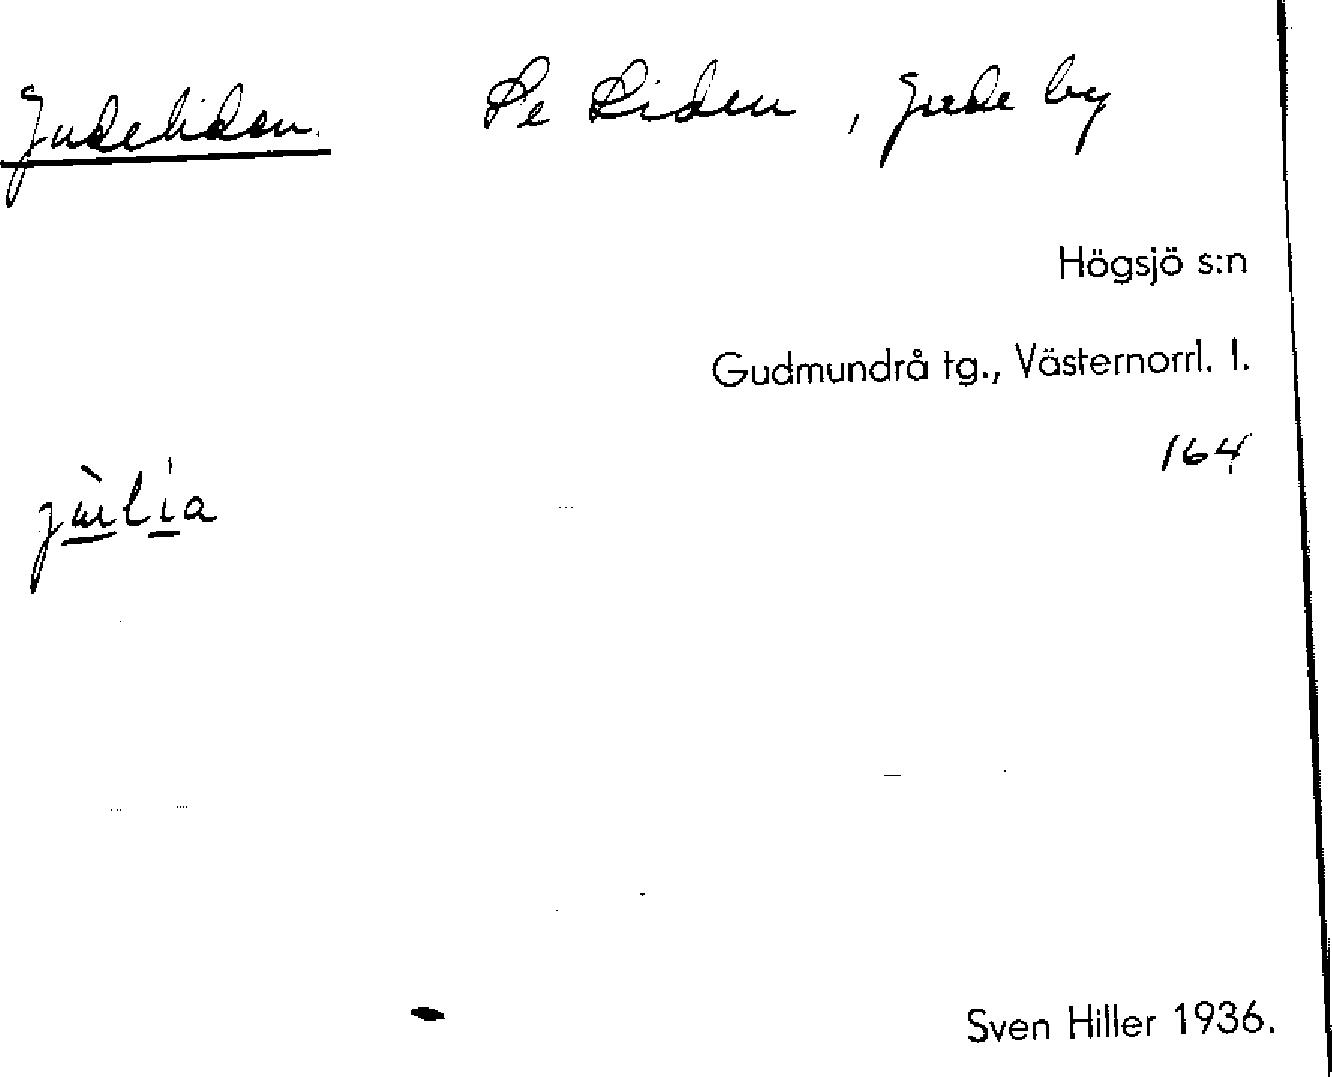 Judeliden. Se Liden, Jude by
Högsjö s:n
Gudmundrå tg., Västernorrl. l.
164
Sven Hiller 1936.